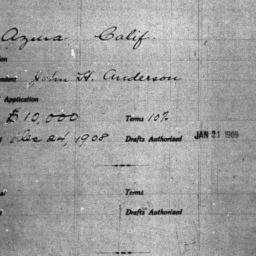 Azusa Calif.
John H. Anderson
Application
$10,000 Terms 10%
Dec 24, 1908 Drafts Authorized JAN 21 1909
Terms
Drafts Authorized